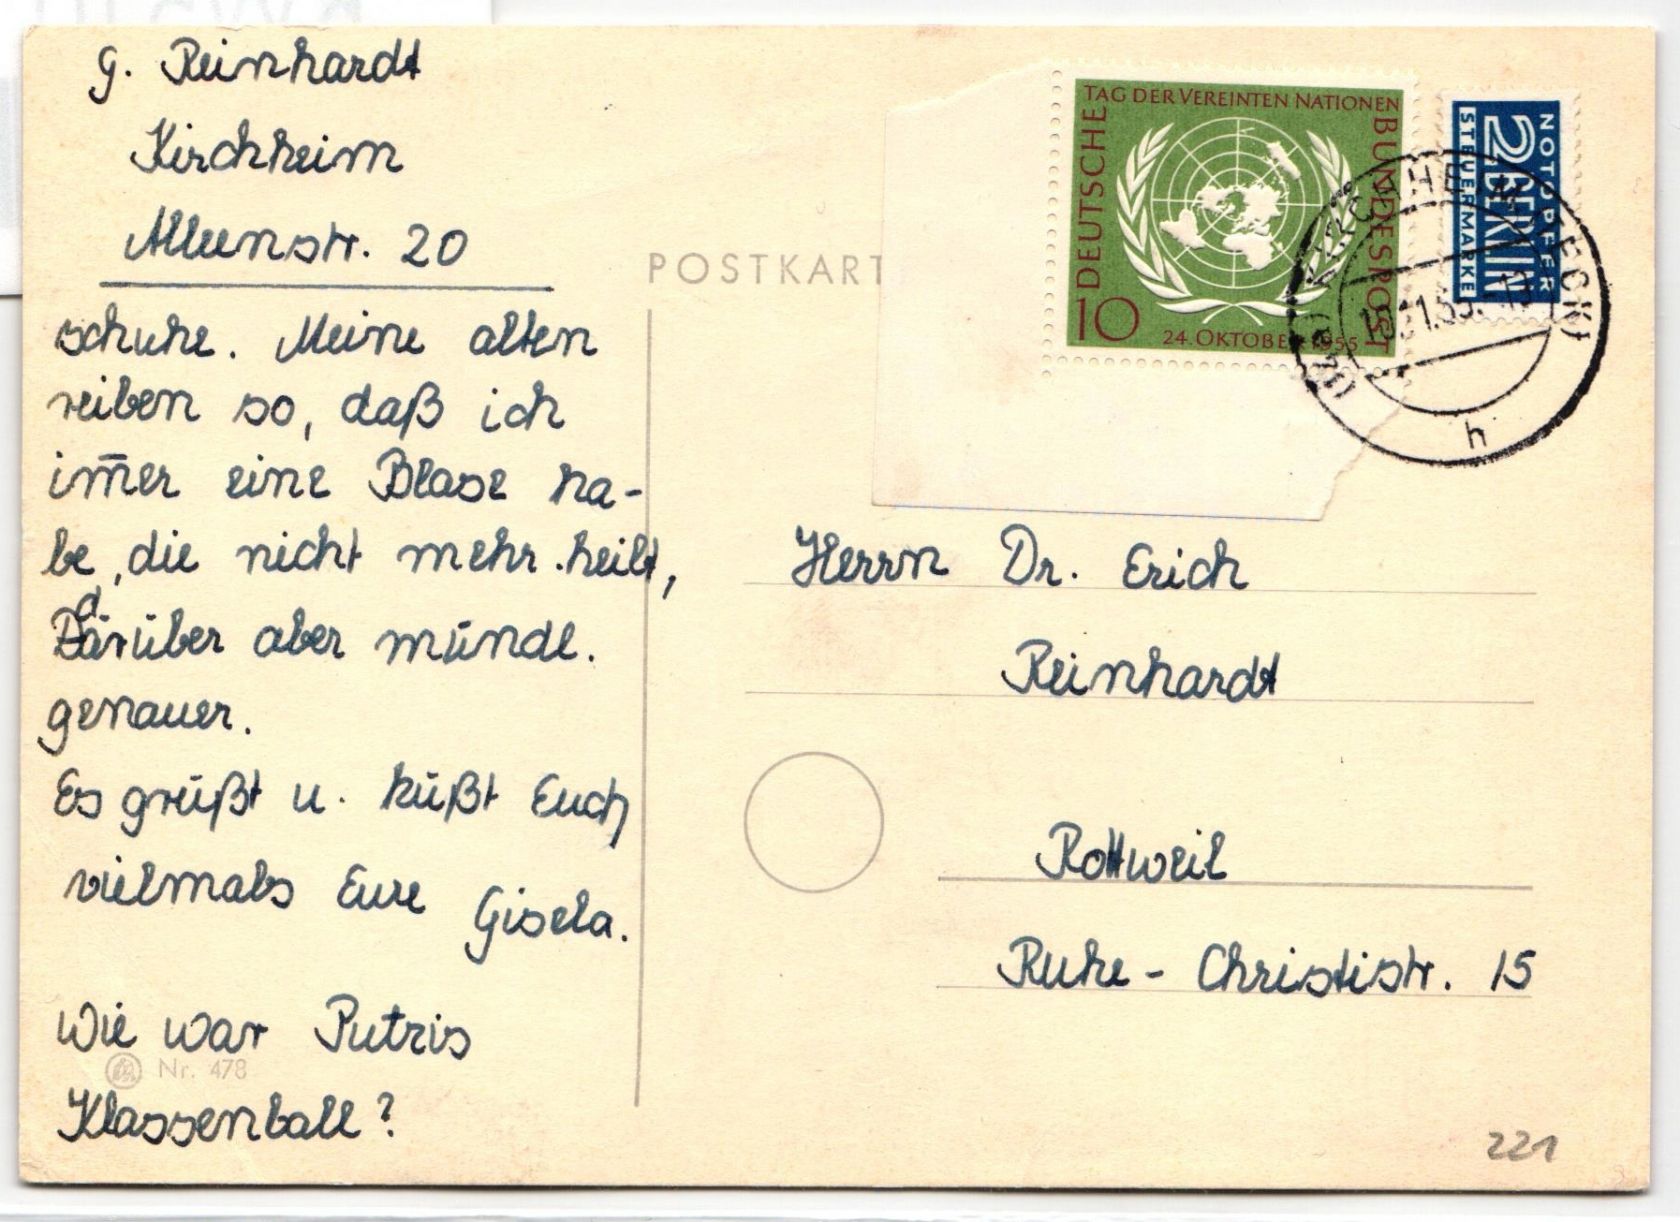 G. Reinhardt
Kirchheim
Alleenstr. 20
schuhe. Meine alten
reiben so, daß ich
im̄er eine Blase ha-
be, die nicht mehr heilt,
darüber aber mündl.
genauer.
Es grüßt u. küßt Euch
vielmals Eure Gisela.
Wie war Putzis
Klassenball?
Nr. 478
POSTKART
TAG DER VEREINTEN NATIONEN
DEUTSCHE
BUNDESPOST
10
24. OKTOBER 1955
NOTOPFER
2 BERLIN
STEUERMARKE
KIRCHHEIM (TECK)
h
Herrn Dr. Erich
Reinhardt
Rottweil
Ruhe-Christistr. 15
221